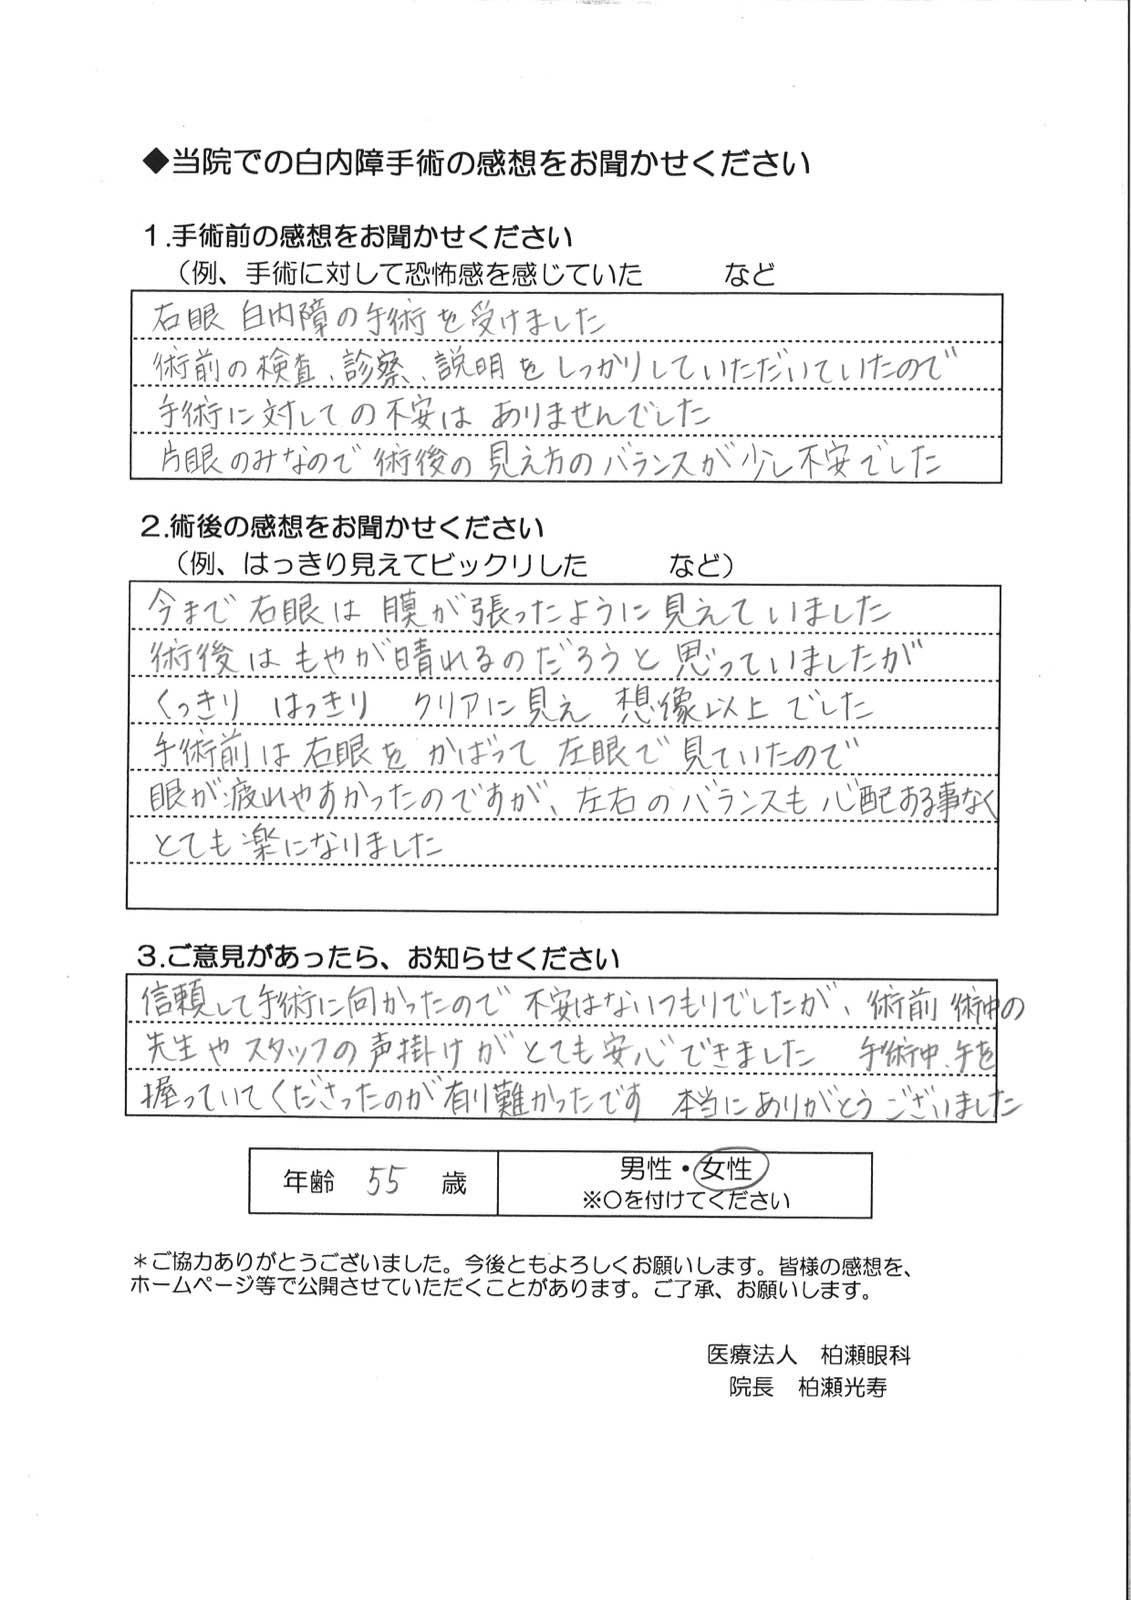 ◆当院での白内障手術の感想をお聞かせください
1.手術前の感想をお聞かせください
（例、手術に対して恐怖感を感じていた　　　など
右眼 白内障の手術を受けました
術前の検査、診察、説明をしっかりしていただいていたので
手術に対しての不安は ありませんでした
片眼のみなので 術後の見え方のバランスが少し不安でした
2.術後の感想をお聞かせください
（例、はっきり見えてビックリした　　　など）
今まで右眼は 膜が張ったように見えていました
術後は もやが晴れるのだろうと思っていましたが
くっきり はっきり クリアに見え 想像以上でした
手術前は右眼を かばって 左眼で見ていたので
眼が疲れやすかったのですが、左右のバランスも心配ある事なく
とても楽になりました
3.ご意見があったら、お知らせください
信頼して手術に向かったので 不安はないつもりでしたが、術前 術中の
先生やスタッフの声掛けがとても安心できました 手術中、手を
握っていてくださったのが有り難かったです 本当にありがとうございました
年齢 55 歳
男性・女性
※○を付けてください
＊ご協力ありがとうございました。今後ともよろしくお願いします。皆様の感想を、
ホームページ等で公開させていただくことがあります。ご了承、お願いします。
医療法人　柏瀬眼科
院長　柏瀬光寿